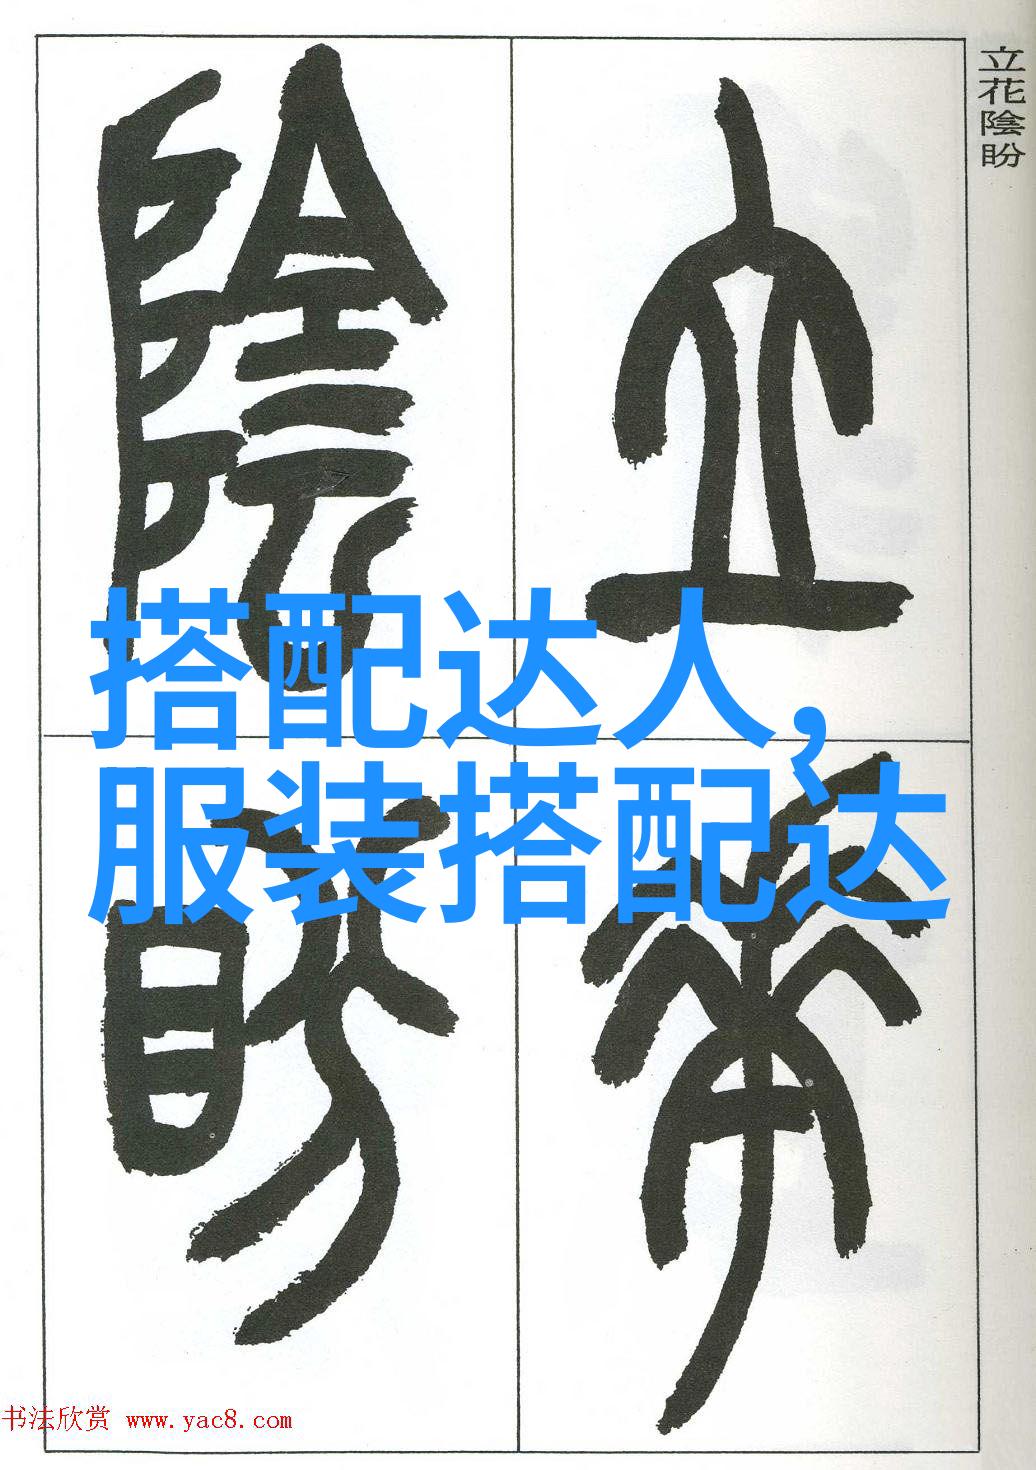 立花陰盼
立
花
陰
盼
搭配达人，
服装搭配达
书法欣赏 www.yac8.com